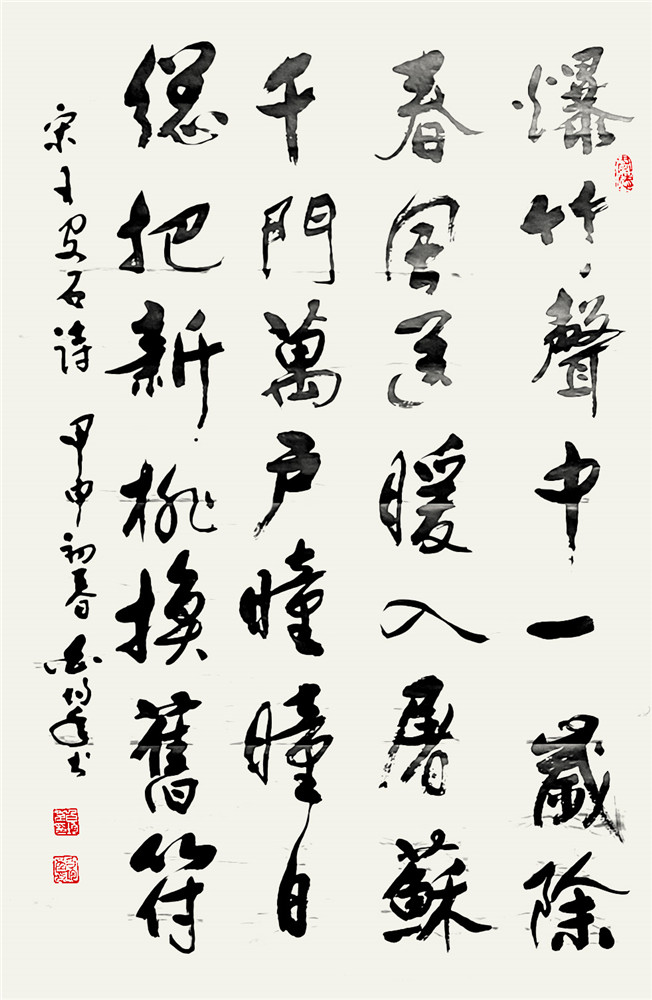 爆竹聲中一歲除
春風送暖入屠蘇
千門萬戶曈曈日
總把新桃換舊符
宋王安石詩 甲申初春